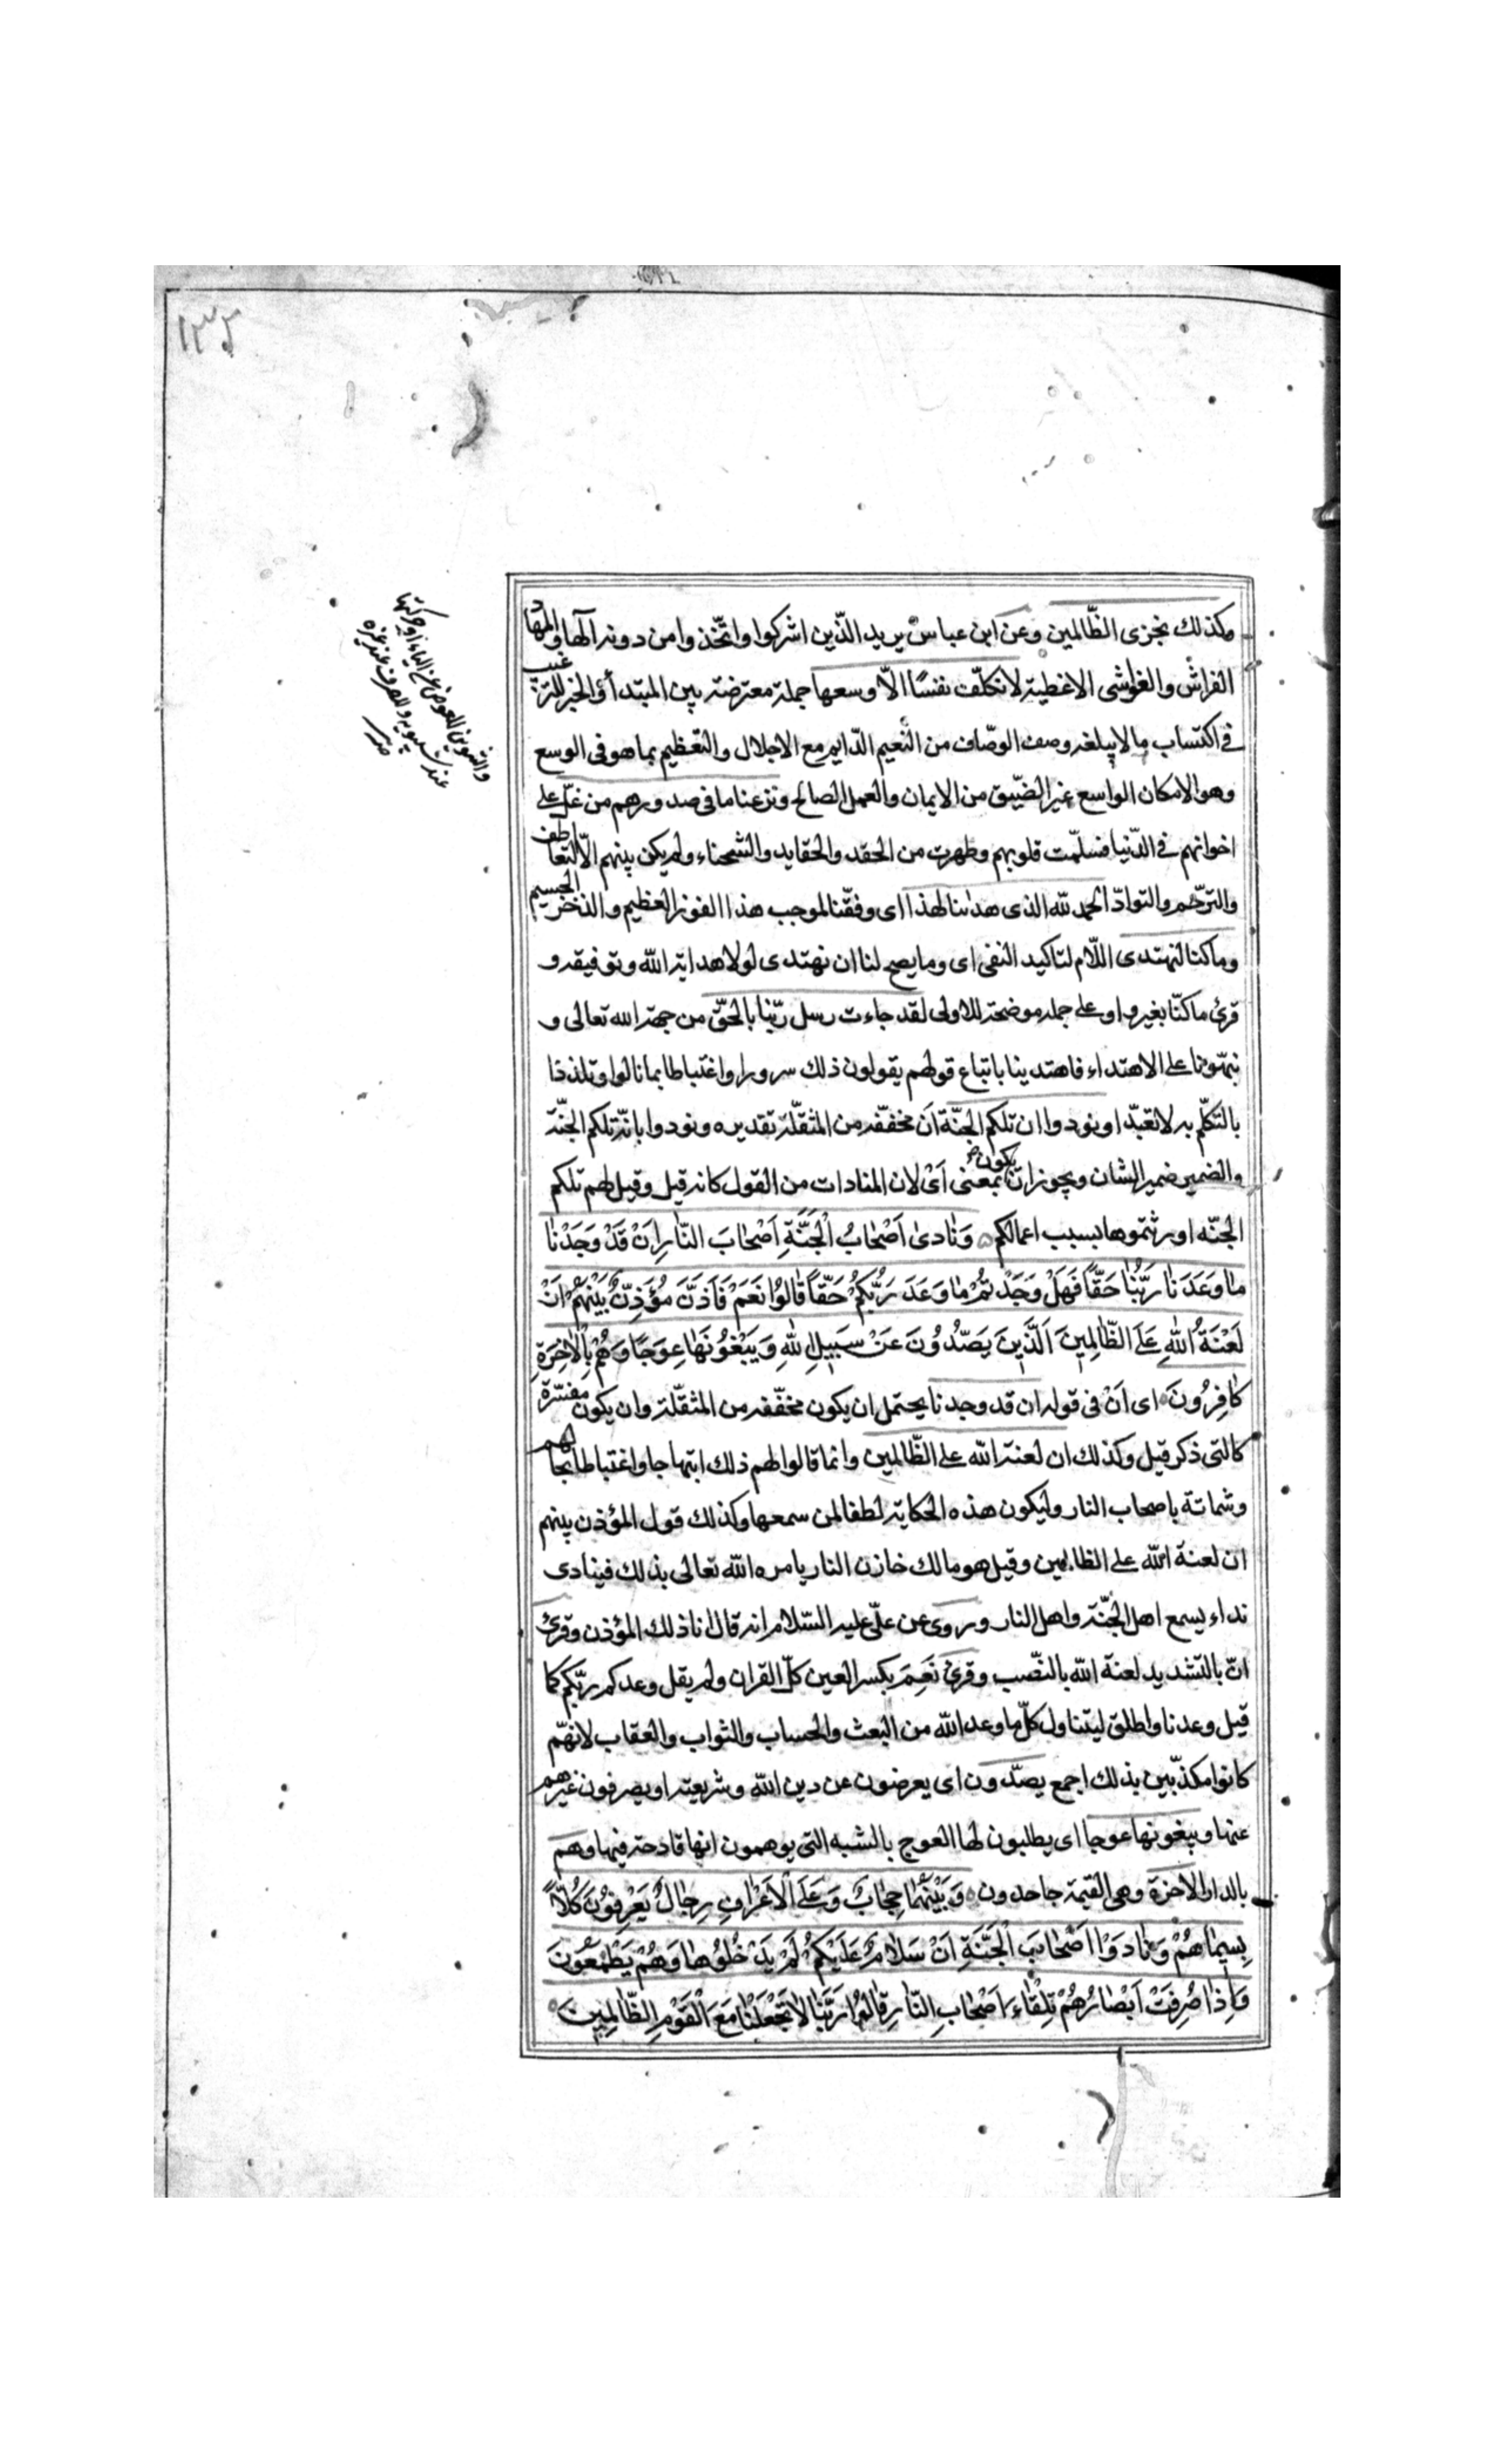 ١٣٢
وكذلك نجزى الظّالمين وعن ابن عباس يريد الذّين اشركوا واتّخذوا من دونه الها والمهاد
الفراش والغواشى الاغطية لا نكلّف نفسًا الاّ وسعها جملة معترضة بين المبتدأ والخبر للترغيب
فى اكتساب ما لا يبلغه وصف الوصّاف من النّعيم الدّايم مع الاجلال والتعظيم بما هو فى الوسع
وهو الامكان الواسع غير الضّيق من الايمان والعمل الصالح ونزعنا ما فى صدورهم من غلّ على
اخوانهم فى الدّنيا فسلّمت قلوبهم وطهرت من الحقد والحقايد والشحناء ولم يكن بينهم الاّ التعاطف
والترحّم والتوادّ الحمد لله الذى هدٰىنا لهذا اى وفقّنا لموجب هذا الفوز العظيم والذخر الجسيم
وما كنا لنهتدى اللّام لتاكيد النفى اى وما يصح لنا ان نهتدى لولا هداية الله وتوفيقه و
قرئ ما كنّا بغير واو على جملة موضحة للاولى لقد جاءت رسل ربّنا بالحقّ من جهة الله تعالى و
نبّهونا على الاهتداء فاهتدينا باتباع قولهم يقولون ذلك سرورا واغتباطا بما نالوا وتلذذا
بالتكلّم به لا تعبّدا ونودوا ان تلكم الجنّة ان مخففّه من المثقلّة تقديره ونودوا بانّه تلكم الجنّة
والضمير ضمير الشان ويجوز ان يكون بمعنى اَىْ لان المنادات من القول كانه قيل وقيل لهم تلكم
الجنّه اورثتموها بسبب اعمالكم وَنٰادىٰ اَصْحٰابُ الْجَنَّةِ اَصْحٰابَ النّٰارِ اَنْ قَدْ وَجَدْنٰا
مٰا وَعَدَنٰا رَبُّنٰا حَقّاً فَهَلْ وَجَدْتُمْ مٰا وَعَدَ رَبُّكُمْ حَقّاً قٰالُوا نَعَمْ فَاَذَّنَ مُؤَذِّنٌ بَيْنَهُمْ اَنْ
لَعْنَةُ اللّٰهِ عَلَى الظّٰالِمِينَ اَلَّذِينَ يَصُدُّونَ عَنْ سَبِيلِ اللّٰهِ وَيَبْغُونَهٰا عِوَجًا وَهُمْ بِالْاٰخِرَةِ
كٰافِرُونَ اى اَنْ فى قوله ان قد وجدنا يحتمل ان يكون مخفّفه من المثقّلة وان يكون مفسّرة
كالتى ذكر قيل وكذلك ان لعنة الله على الظّالمين وانما قالوا لهم ذلك ابتهاجا واغتباطا بحالهم
وشماتة باصحاب النار وليكون هذه الحكاية لطفا لمن سمعها وكذلك قول المؤذن بينهم
ان لعنة الله على الظالمين وقيل هو مالك خازن النار يامره الله تعالى بذلك فينادى
نداء يسمع اهل الجنّة واهل النار وروى عن علّى عليه السّلام انه قال انا ذلك المؤذن وقرئ
انّ بالتشديد لعنة الله بالنّصب وقرئ نَعِمَ بكسر العين كلّ القران ولم يقل وعدكم ربّكم كما
قيل وعدنا واطلق ليتناول كلّ ما وعد الله من البعث والحساب والثواب والعقاب لانهّم
كانوا مكذّبين بذلك اجمع يصدّون اى يعرضون عن دين الله وشريعته او يصرفون غيرهم
عنها ويبغونها عوجا اى يطلبون لها العوج بالشبه التى يوهمون انها قادحة فيها وهم
بالدار الاخرة وهى القيمة جاحدون وَبَيْنَهُمٰا حِجٰابٌ وَعَلَى الْاَعْرٰافِ رِجٰالٌ يَعْرِفُونَ كُلّاً
بِسِيمٰاهُمْ وَنٰادَوْا اَصْحٰابَ الْجَنَّةِ اَنْ سَلٰامٌ عَلَيْكُمْ لَمْ يَدْخُلُوهٰا وَهُمْ يَطْمَعُونَ
وَاِذٰا صُرِفَتْ اَبْصٰارُهُمْ تِلْقٰاءَ اَصْحٰابِ النّٰارِ قٰالُوا رَبَّنٰا لاٰ تَجْعَلْنٰا مَعَ الْقَوْمِ الظّٰالِمِينَ
والتنوين للعوض عن الياء او حركتها
عند سيبويه وللصرف عند غيره